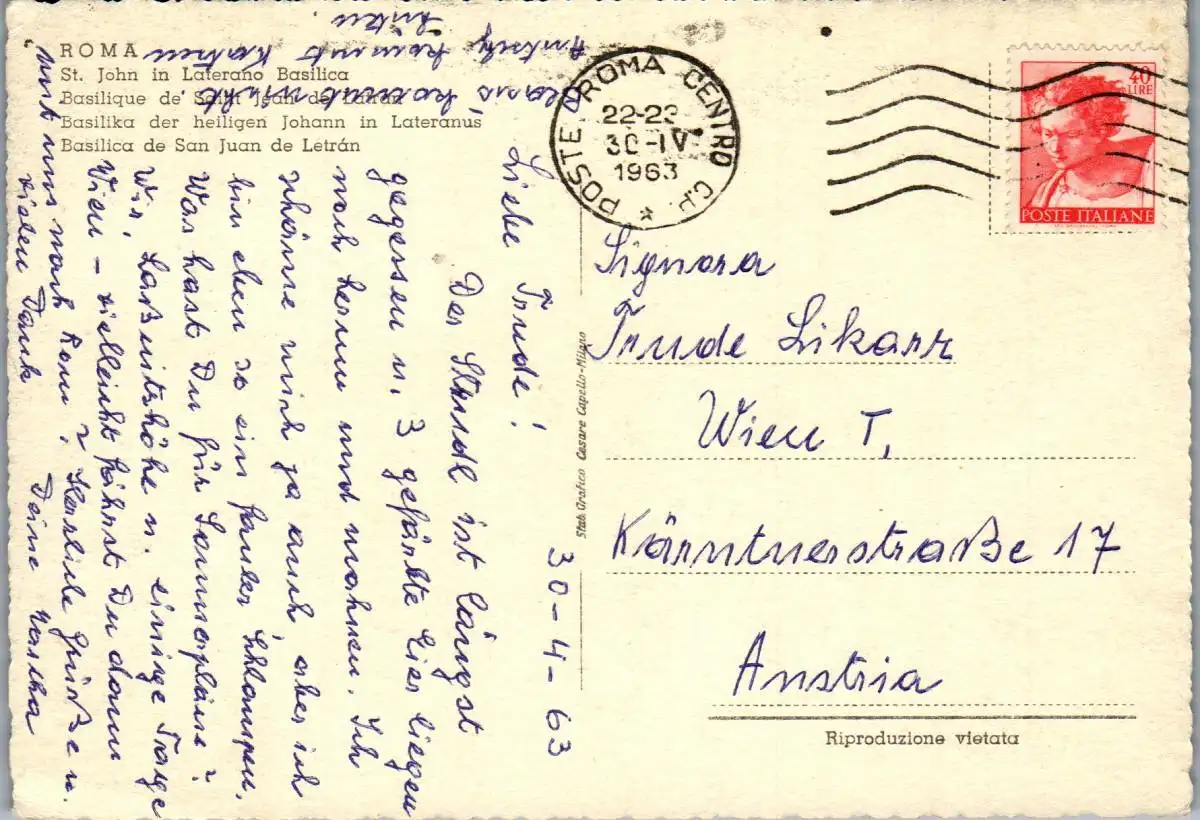 ROMA
St. John in Laterano Basilica
Basilique de Saint Jean de Latran
Basilika der heiligen Johann in Lateranus
Basilica de San Juan de Letrán
POSTE ROMA CENTRO C.P.
22-23
30-IV
1963
40
LIRE
POSTE ITALIANE
Signora
Trude Likarz
Wien I,
Kärntnerstraße 17
Austria
Riproduzione vietata
Stab. Grafico Cesare Capello-Milano
30-4-63
Liebe Trude!
Der Strudl ist längst
gegessen u. 3 gefärbte Eier liegen
noch herum und mahnen. Ich
schäme mich ja auch, aber ich
bin eben so ein fauler Schlampen.
Was hast Du für Sommerpläne?
Wir, Laßnitzhöhe u. einige Tage
Wien – vielleicht fährst Du dann
mit uns nach Rom? Herzliche Grüße u.
vielen Dank Deine
kommt